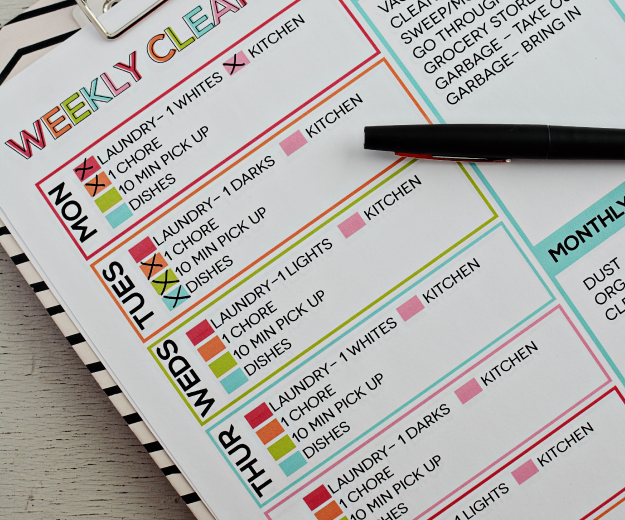 WEEKLY CLEAN
MON
LAUNDRY- 1 WHITES KITCHEN
1 CHORE
10 MIN PICK UP
DISHES
TUES
LAUNDRY- 1 DARKS KITCHEN
1 CHORE
10 MIN PICK UP
DISHES
WEDS
LAUNDRY -1 LIGHTS KITCHEN
1 CHORE
10 MIN PICK UP
DISHES
THUR
LAUNDRY- 1 WHITES KITCHEN
1 CHORE
10 MIN PICK UP
DISHES
LAUNDRY- 1 DARKS KITCHEN
1 CHORE
10 MIN PICK UP
1 LIGHTS KITCHEN
SWEEP/
GO THROUGH
GROCERY STORE
GARBAGE - TAKE
GARBAGE - BRING IN
MONTHLY
DUST